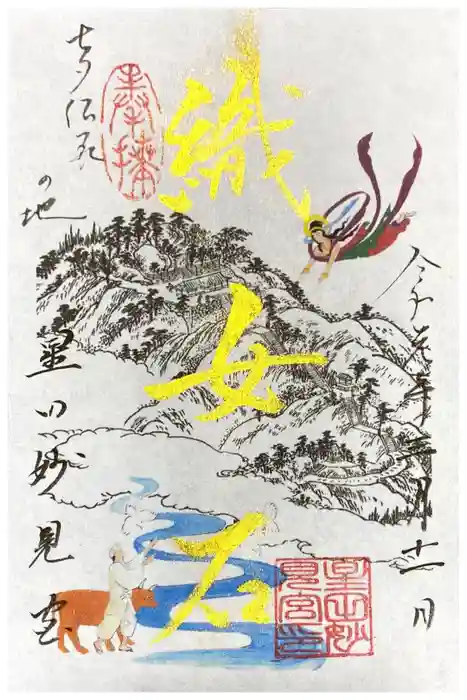 令和年三月日
織女石
奉拝
七夕伝説
の地
星田妙見宮
星田妙
見宮印